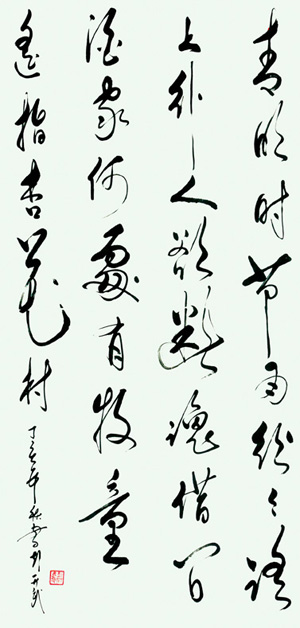 清明时节雨纷々路
上行人欲断魂借问
酒家何處有牧童
遥指杏花村
丁亥年秋書